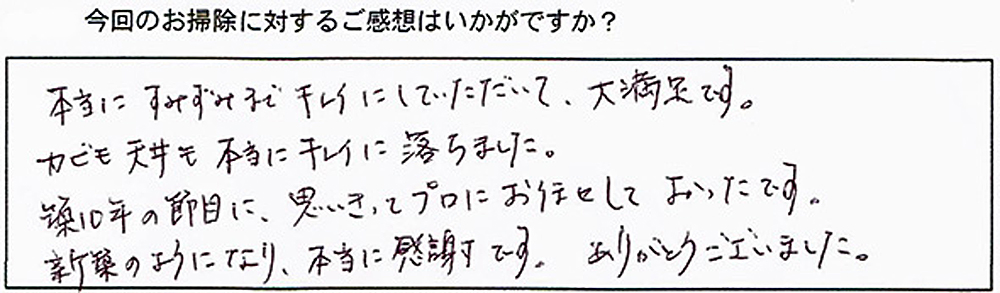 今回のお掃除に対するご感想はいかがですか？
本当にすみずみまで キレイにしていただいて、大満足です。
カビも天井も本当にキレイに落ちました。
築10年の節目に、思いきってプロにお任せして よかったです。
新築のようになり、本当に感謝です。 ありがとうございました。